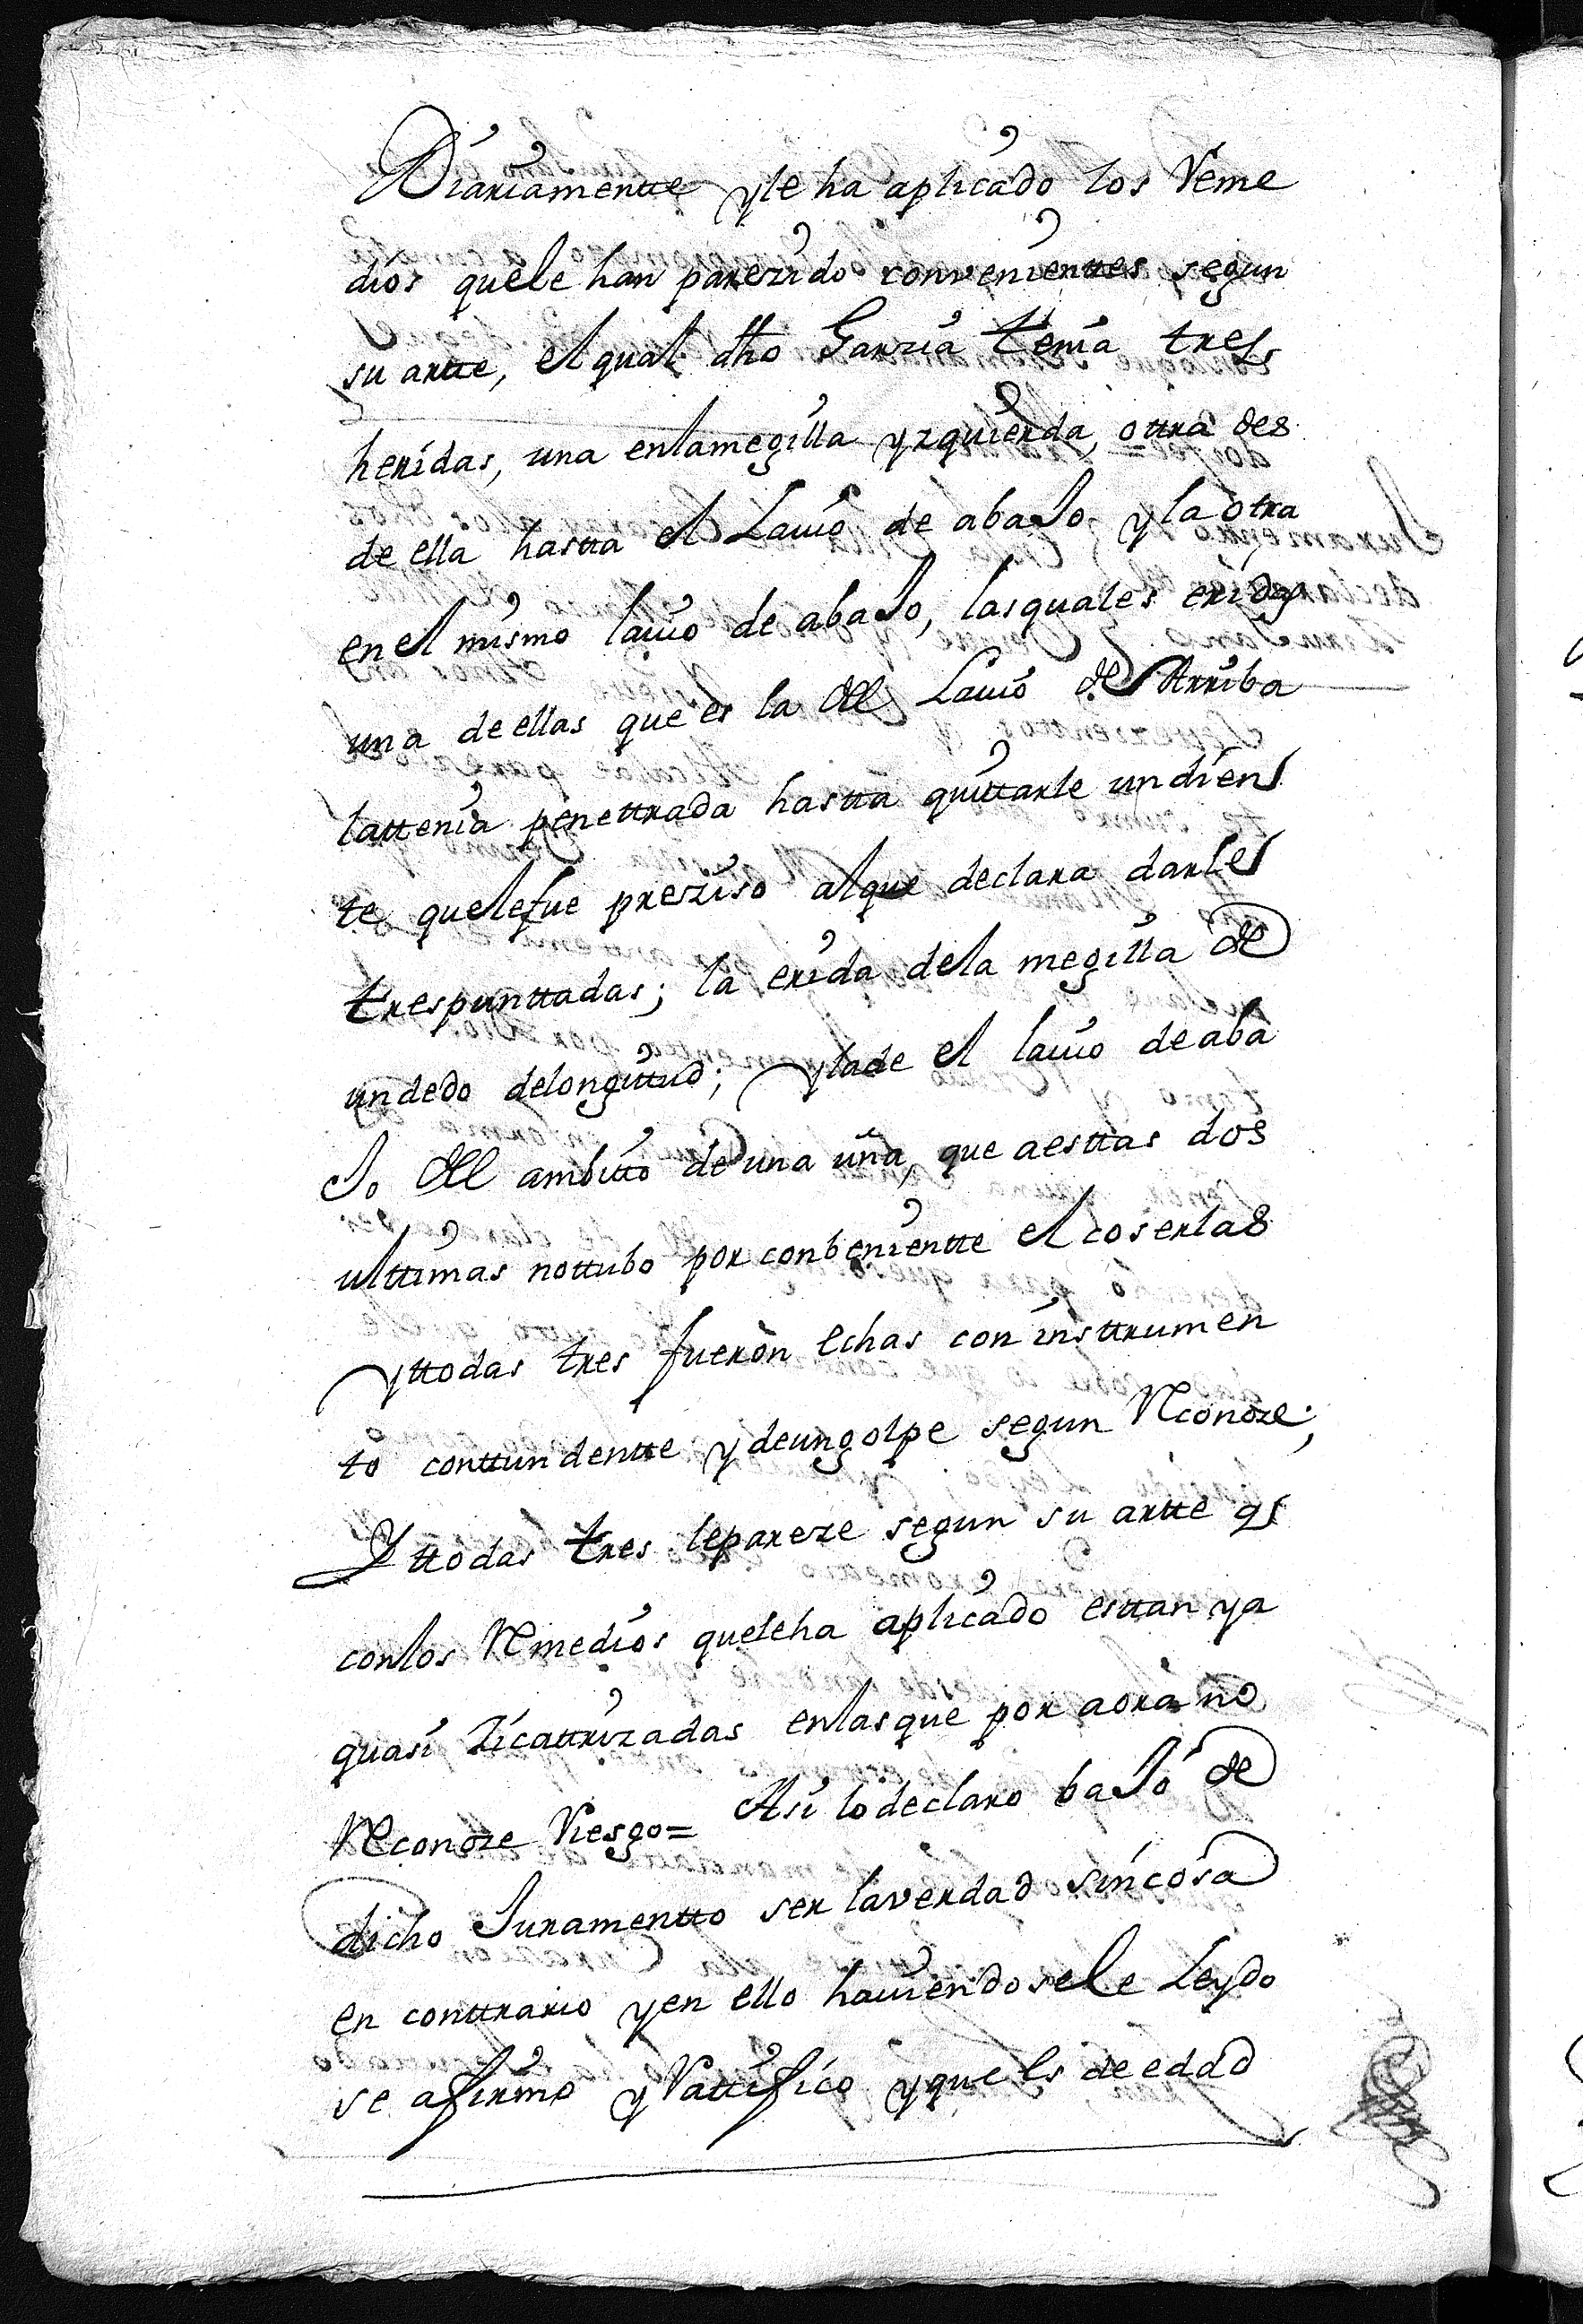 Diariamentte y le ha aplicado los Reme
dios que le han parezido convenienttes segun
su artte, el qual dho Garzia tenia tres
heridas, una en la megilla yzquierda, ottra des
de ella hastta el Lavio de abaJo y la otra
en el mismo lavio de abaJo, las quales eridas
una de ellas que es la del Lavio de Arriba
la ttenia penettrada hastta quittarle un dien
te que le fue preziso al que declara darle
tres punttadas; la erida de la megilla de
un dedo de longittud; y la de el lavio de aba
Jo del ambitto de una uña, que a esttas dos
ulttimas no ttubo por conbenientte el coserlas
y ttodas tres fueron echas con insttrumen
to conttundentte y de un golpe segun Reconoze;
Y ttodas tres le pareze segun su artte q.e
con los Remedios que le ha aplicado esttan ya
quasi Zicattrizadas en las que por aora no
Reconoze Riesgo = Asi lo declaro baJo de
dicho Juramentto ser la verdad sin cosa
en conttrario y en ello haviendosele Leydo
se afirmo y Rattifico y que es de edad